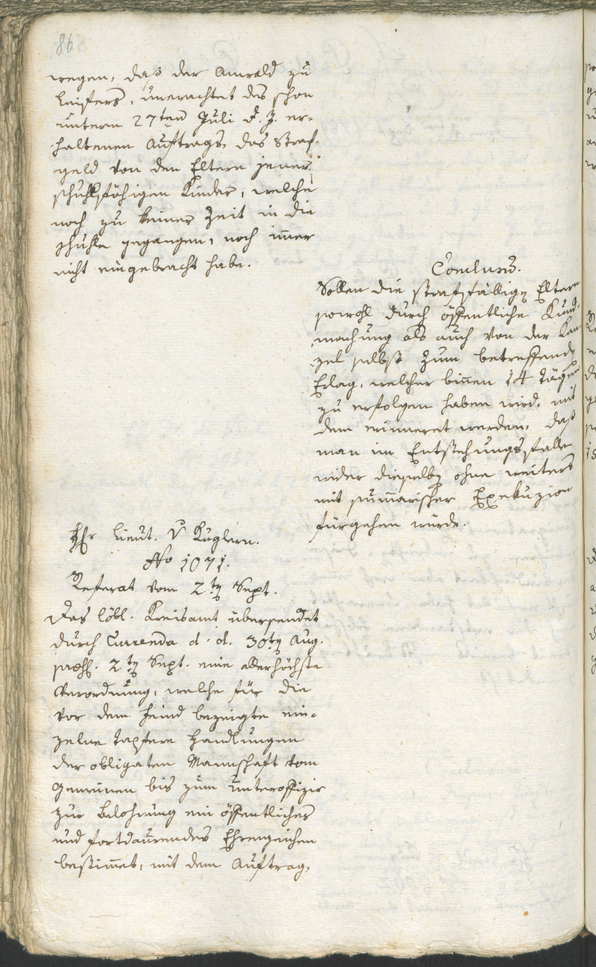 86
wegen, daß der Anwald zu
Leifers, unerachtet des schon
unterm 27ten Juli d. J. er-
haltenen Auftrags, das Straf-
geld von den Eltern jener
schuhlfähigen Kinder, welche
noch zu keiner Zeit in die
schuhle gegangen, noch imer
nicht eingebracht habe.
Conclusū.
Sollen die straffällign Eltern
sowohl durch öffentliche Kund-
machung als auch von der Kan-
zel selbst zum betreffenden
Erlag, welcher binen 14 Tägen
zu erfolgen haben wird, mit
dem erinneret werden, daß
man im Entstehungsfalle
wider dieselbn ohne weiters
mit sumarischer Exekuzion
fürgehen würde.
Hr Lieut. v Kuglern.
No 1071.
Referat vom 2tn Sept.
Das löbl. Kreisamt übersendet
durch Currenda d. d. 30tn Aug.
præs. 2tn Sept. eine allerhöchste
Verordnung, welche für die
vor dem Feind bezeigte ein-
zelne tapfere Handlungen
der obligaten Mannschaft vom
Gemeinen bis zum Unteroffizir
zur Belohnung ein öffentliches
und fortdaurendes Ehrenzeichen
bestimmet, mit dem Auftrag,